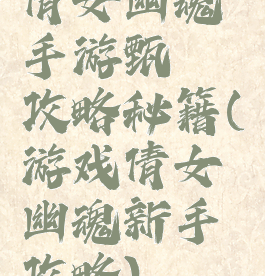 倩女幽魂
手游甄
攻略秘籍(
游戏倩女
幽魂新手
攻略)